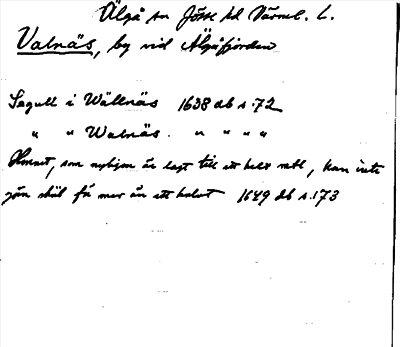 Älgå sn Jösse hd Värml. L.
Valnäs, by vid Älgåfjorden
Segull i Wällnäs 1638 db s. 72
" " Walnäs. " " " "
Hemmet, som nyligen är lagt till ett helt mtl, kan inte
göra skäl få mer än ett halvt 1649 db s. 173